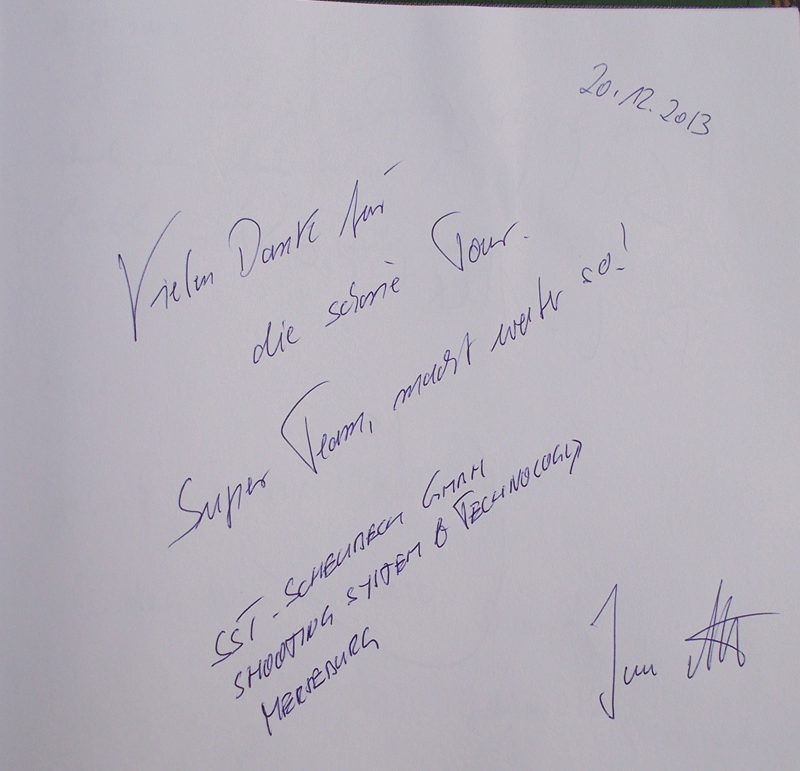 20.12.2013
Vielen Dank für
die schöne Tour.
Super Team, macht weiter so!
SST - GMBH
SHOOTING SYSTEM & TECHNOLOGY
MERSEBURG